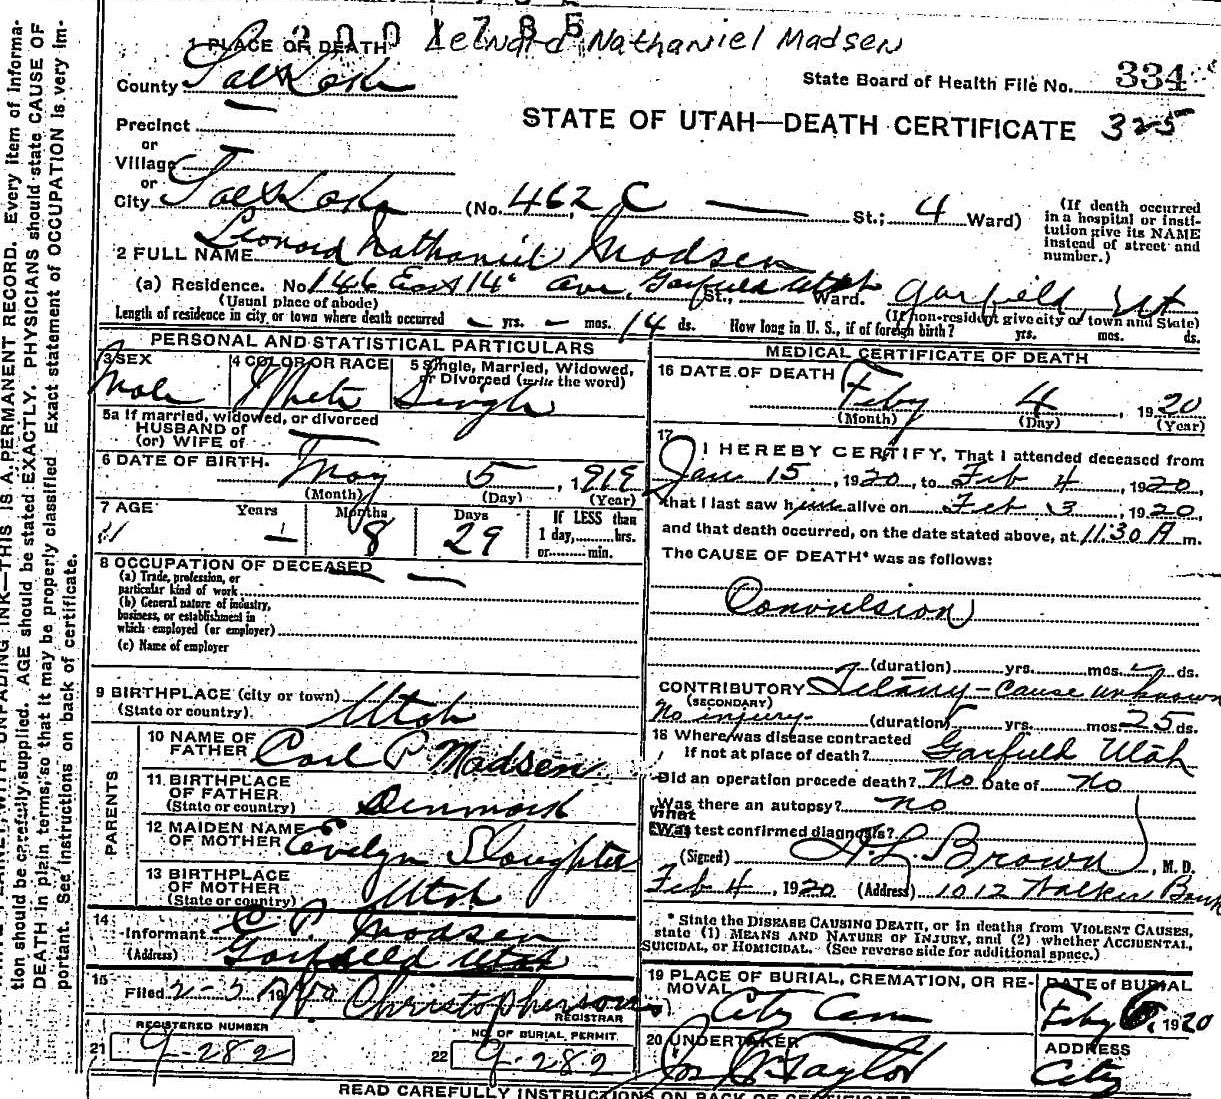 2001785 Leonard Nathaniel Madsen
1 PLACE OF DEATH
County Salt Lake
State Board of Health File No. 334
STATE OF UTAH—DEATH CERTIFICATE 325
Precinct
or
Village
or
City Salt Lake (No. 462 C — St.; 4 Ward)
(If death occurred in a hospital or institution give its NAME instead of street and number.)
2 FULL NAME Leonard Nathaniel Madsen
(a) Residence. No. 146 East 14th Ave, Garfield Utah St., Ward. Garfield, Ut
(Usual place of abode) (If non-resident give city or town and State)
Length of residence in city or town where death occurred — yrs. — mos. 14 ds. How long in U. S., if of foreign birth? yrs. mos. ds.
PERSONAL AND STATISTICAL PARTICULARS
3 SEX Male
4 COLOR OR RACE White
5 Single, Married, Widowed, or Divorced (write the word) Single
5a If married, widowed, or divorced
HUSBAND of
(or) WIFE of
6 DATE OF BIRTH. May 5, 1919
(Month) (Day) (Year)
7 AGE Years — Months 8 Days 29 If LESS than 1 day, hrs. or min.
8 OCCUPATION OF DECEASED
(a) Trade, profession, or
particular kind of work
(b) General nature of industry,
business, or establishment in
which employed (or employer)
(c) Name of employer
9 BIRTHPLACE (city or town)
(State or country). Utah
PARENTS
10 NAME OF FATHER Carl P Madsen
11 BIRTHPLACE OF FATHER (State or country) Denmark
12 MAIDEN NAME OF MOTHER Evelyn Slaughter
13 BIRTHPLACE OF MOTHER (State or country) Utah
14 Informant C. P. Madsen
(Address) Garfield Utah
15 Filed 2-5 19 Christopherson
REGISTRAR
21 REGISTERED NUMBER 9-282
22 NO. OF BURIAL PERMIT 9-282
MEDICAL CERTIFICATE OF DEATH
16 DATE OF DEATH Feby 4, 1920
(Month) (Day) (Year)
17 I HEREBY CERTIFY, That I attended deceased from
Jan. 15, 1920, to Feb 4, 1920,
that I last saw him alive on Feb 3, 1920,
and that death occurred, on the date stated above, at 11:30 A m.
The CAUSE OF DEATH* was as follows:
Convulsion
(duration) yrs. mos. ds.
CONTRIBUTORY Tetany - cause unknown
(SECONDARY)
No injury. (duration) yrs. mos. 25 ds.
18 Where was disease contracted
if not at place of death? Garfield Utah
Did an operation precede death? No Date of No
Was there an autopsy? No
What test confirmed diagnosis?
(Signed) H. L. Brown, M. D.
Feb 4, 1920 (Address) 1012 Walker Bank
* State the DISEASE CAUSING DEATH, or in deaths from VIOLENT CAUSES,
state (1) MEANS AND NATURE OF INJURY, and (2) whether ACCIDENTAL,
SUICIDAL, or HOMICIDAL. (See reverse side for additional space.)
19 PLACE OF BURIAL, CREMATION, OR REMOVAL City Cem
DATE of BURIAL Feby 6, 1920
20 UNDERTAKER Jos Wm Taylor
ADDRESS City
READ CAREFULLY INSTRUCTIONS ON BACK OF CERTIFICATE
UNFADING INK—THIS IS A PERMANENT RECORD. Every item of informa-
tion should be carefully supplied. AGE should be stated EXACTLY. PHYSICIANS should state CAUSE OF
DEATH in plain terms, so that it may be properly classified. Exact statement of OCCUPATION is very im-
portant. See instructions on back of certificate.